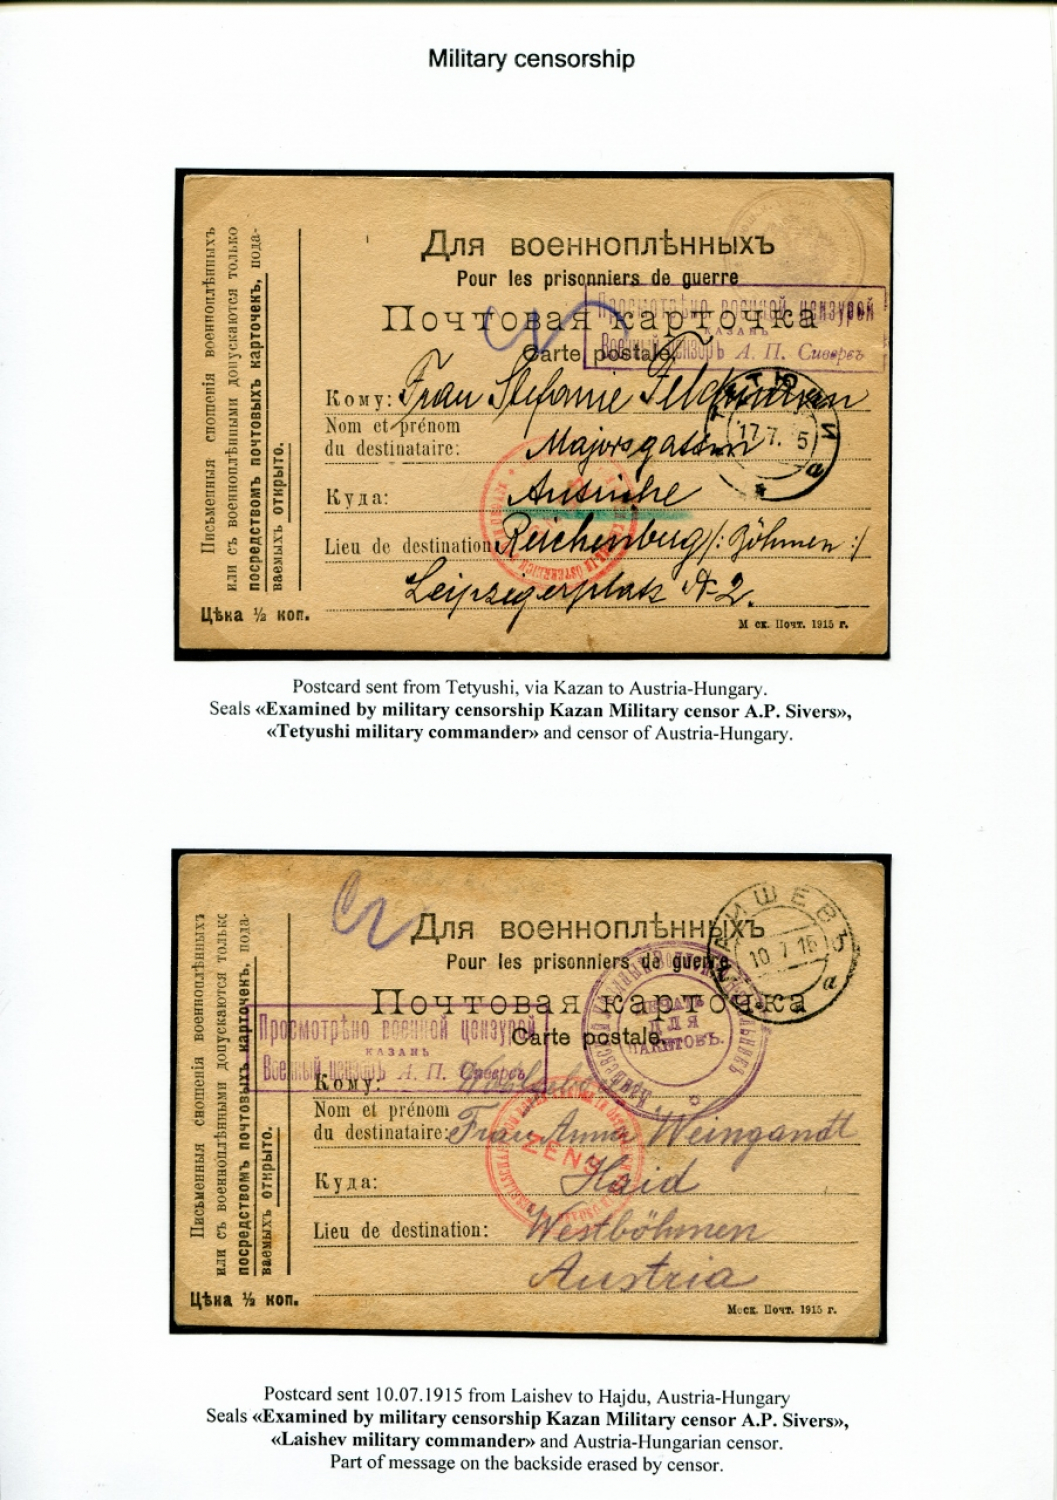 Military censorship
Для военноплѣнныхъ
Pour les prisonniers de guerre
Почтовая карточка
Carte postale.
Просмотрѣно военной цензурой
КАЗАНЬ
Военный цензоръ А. П. Сиверсъ
Письменныя сношенія военноплѣнныхъ
или съ военноплѣнными допускаются только
посредствомъ почтовыхъ карточекъ, пода-
ваемыхъ открыто.
Цѣна ½ коп.
Кому: Frau Stefanie Feldmann
Nom et prénom
du destinataire: Majorsgasse
ТЕТЮШИ
17.7.15
а
Куда: Autriche
Lieu de destination: Reichenberg /: Böhmen :/
Leipzigerplatz № 2.
Моск. Почт. 1915 г.
Postcard sent from Tetyushi, via Kazan to Austria-Hungary.
Seals «Examined by military censorship Kazan Military censor A.P. Sivers»,
«Tetyushi military commander» and censor of Austria-Hungary.
Для военноплѣнныхъ
Pour les prisonniers de guerre
Почтовая карточка
Carte postale.
ЛАИШЕВЪ
10 7 15
а
ПЕЧАТЬ
ДЛЯ
ПАКЕТОВЪ.
Просмотрѣно военной цензурой
КАЗАНЬ
Военный цензоръ А. П. Сиверсъ
Письменныя сношенія военноплѣнныхъ
или съ военноплѣнными допускаются только
посредствомъ почтовыхъ карточекъ, пода-
ваемыхъ открыто.
Цѣна ½ коп.
Кому:
Nom et prénom
du destinataire: Frau Anna Weingandt
ZENS
Куда: Haid
Lieu de destination: Westböhmen
Austria
Моск. Почт. 1915 г.
Postcard sent 10.07.1915 from Laishev to Hajdu, Austria-Hungary
Seals «Examined by military censorship Kazan Military censor A.P. Sivers»,
«Laishev military commander» and Austria-Hungarian censor.
Part of message on the backside erased by censor.